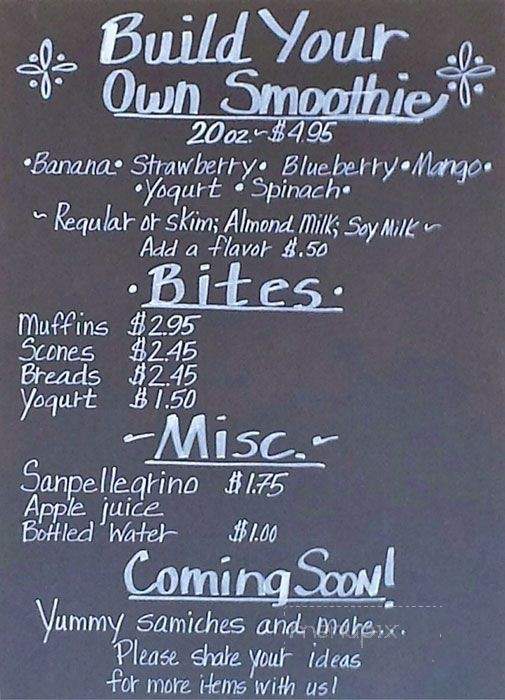 Build Your
Own Smoothie
20oz. ~ $4.95
•Banana• Strawberry• Blueberry•Mango•
•Yogurt •Spinach•
~ Regular or skim; Almond Milk; Soy Milk ~
Add a flavor $.50
•Bites•
Muffins $2.95
Scones $2.45
Breads $2.45
Yogurt $1.50
~Misc.~
Sanpellegrino $1.75
Apple juice
Bottled Water $1.00
Coming Soon!
Yummy samiches and more...
menupix
Please share your ideas
for more items with us!